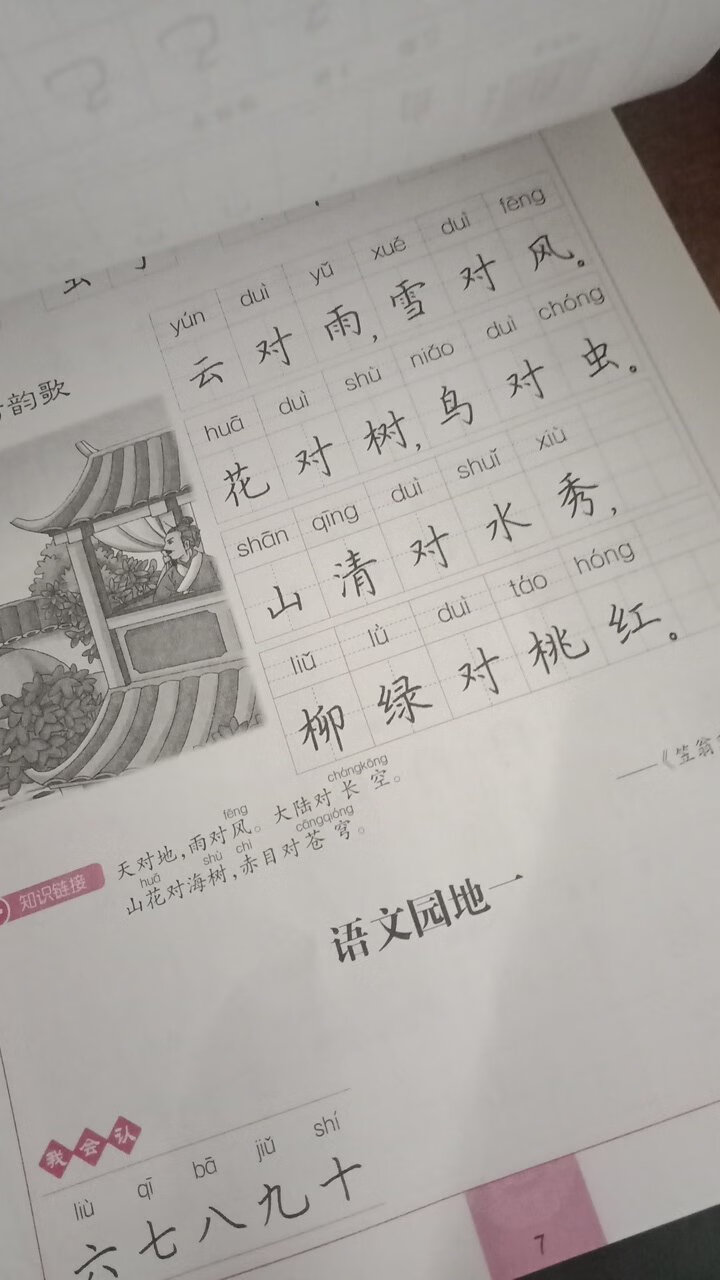 yún duì yǔ xuě duì fēng
云对雨，雪对风。
huā duì shù niǎo duì chóng
花对树，鸟对虫。
shān qīng duì shuǐ xiù
山清对水秀，
liǔ lǜ duì táo hóng
柳绿对桃红。
韵歌
——《笠翁
fēng chángkōng
天对地，雨对风。大陆对长空。
huā shù chì cāngqióng
山花对海树，赤日对苍穹。
知识链接
语文园地一
我会认
liù qī bā jiǔ shí
六七八九十
7